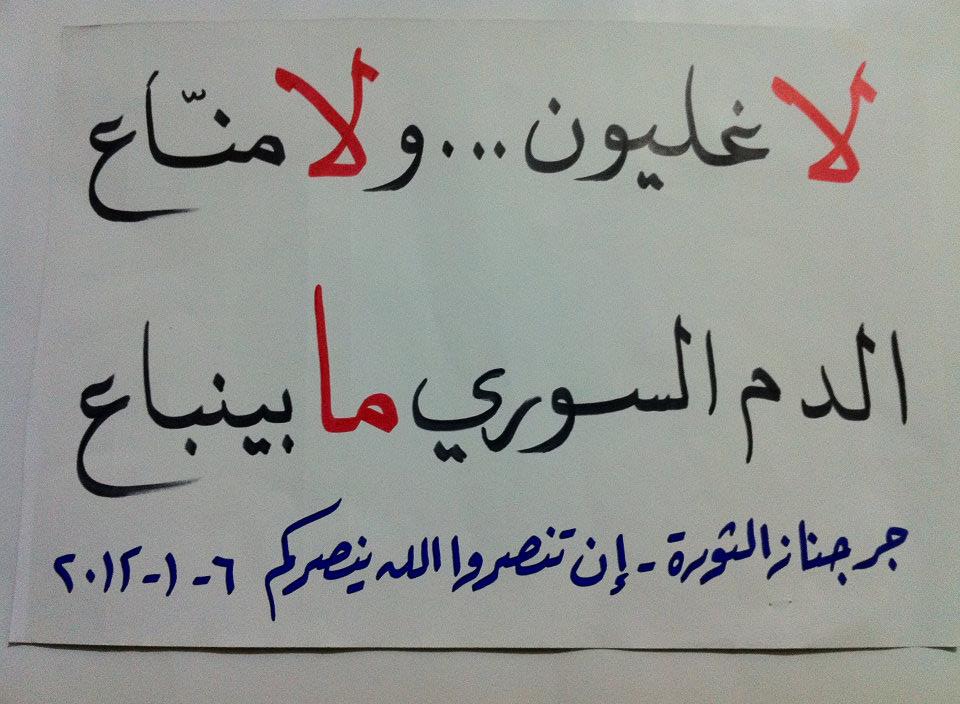 لا غليون ... ولا منّاع
الدم السوري ما بينباع
جرجناز الثورة - إن تنصروا الله ينصركم ٦-١-٢٠١٢